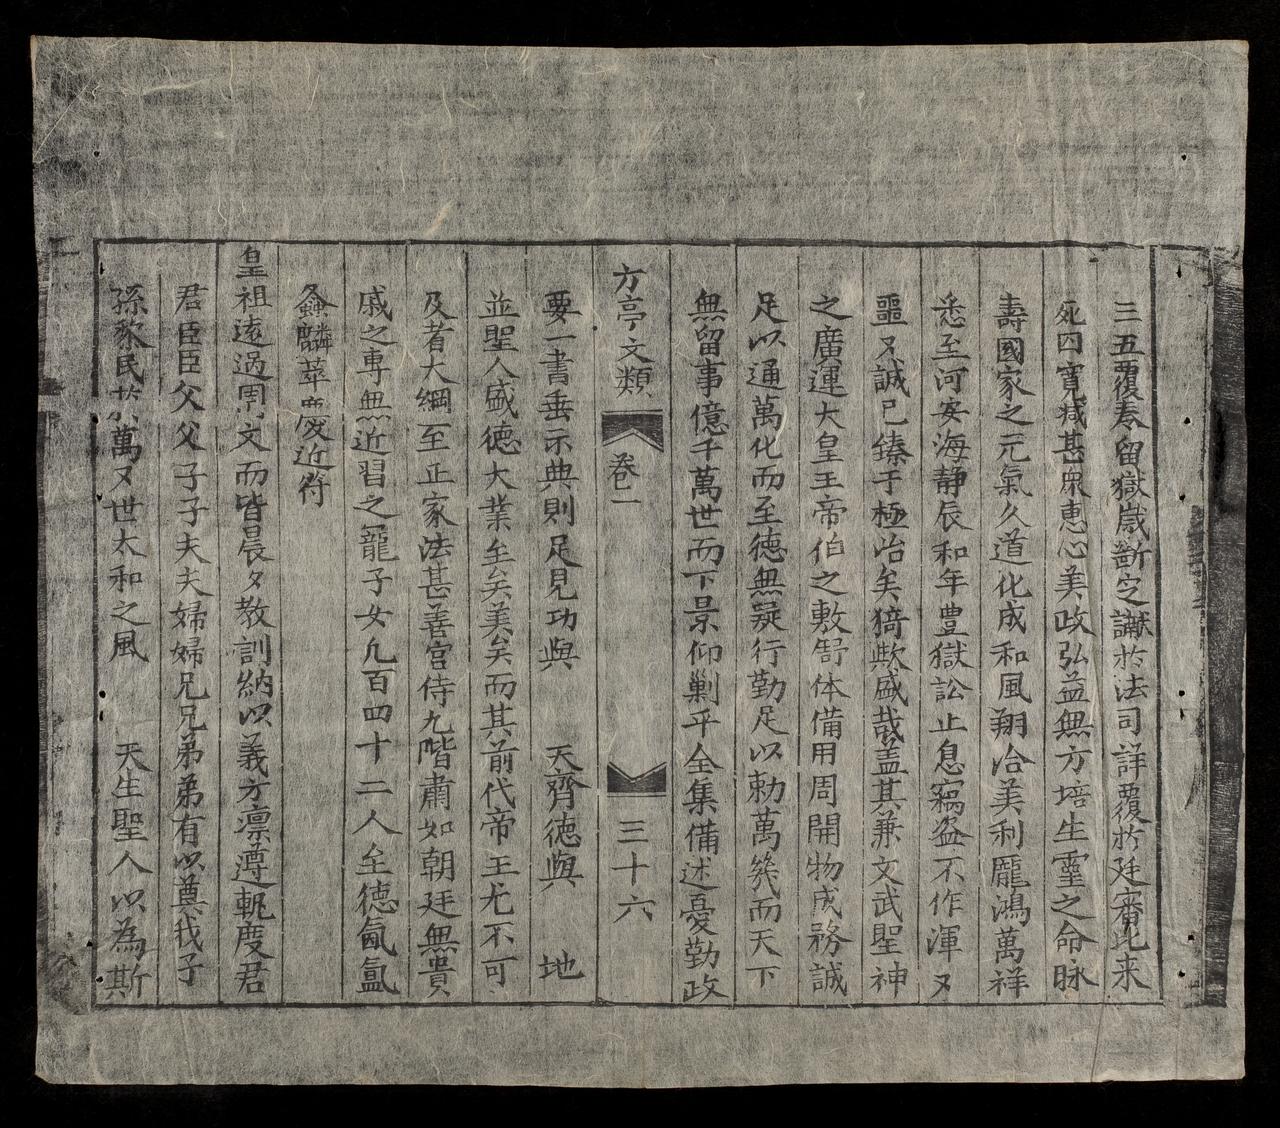 三五覆奏留獄歲斷定讞於法司詳覆於廷審比来
死囚寬減甚衆惠心美政弘益無方培生靈之命脉
壽國家之元氣久道化成和風翔洽美利龐鴻萬祥
悉至河安海靜辰和年豊獄訟止息竊盗不作渾〻
噩〻誠已臻于極治矣猗歟盛哉盖其兼文武聖神
之廣運大皇王帝伯之敷㓱体備用周開物成務誠
足以通萬化而至德無疑行勤足以勅萬幾而天下
無留事億千萬世而下景仰剿平全集備述憂勤政
方亭文類 卷一 三十六
要一書垂示典則足見功與 天齊德與 地
並聖人盛德大業至矣美矣而其前代帝王尤不可
及者大綱至正家法甚善宮侍九階肅如朝廷無貴
戚之專無近習之寵子女凡百四十二人至德氤氳
螽麟萃慶近符
皇祖遠過周文而皆晨夕教訓納以義方凛遵軌度君
君臣臣父父子子夫夫婦婦兄兄弟弟有以奠我子
孫黎民於萬〻世太和之風 天生聖人以為斯